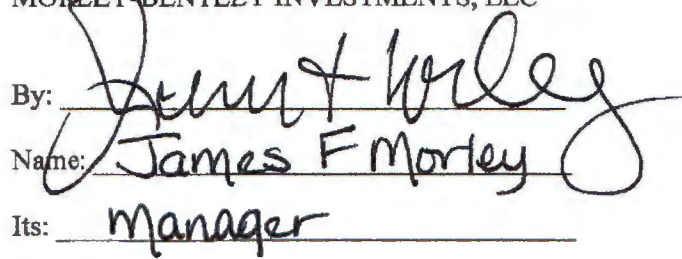 MORLEY-BENTLEY INVESTMENTS, LLC
By:
Name: James F Morley
Its: Manager